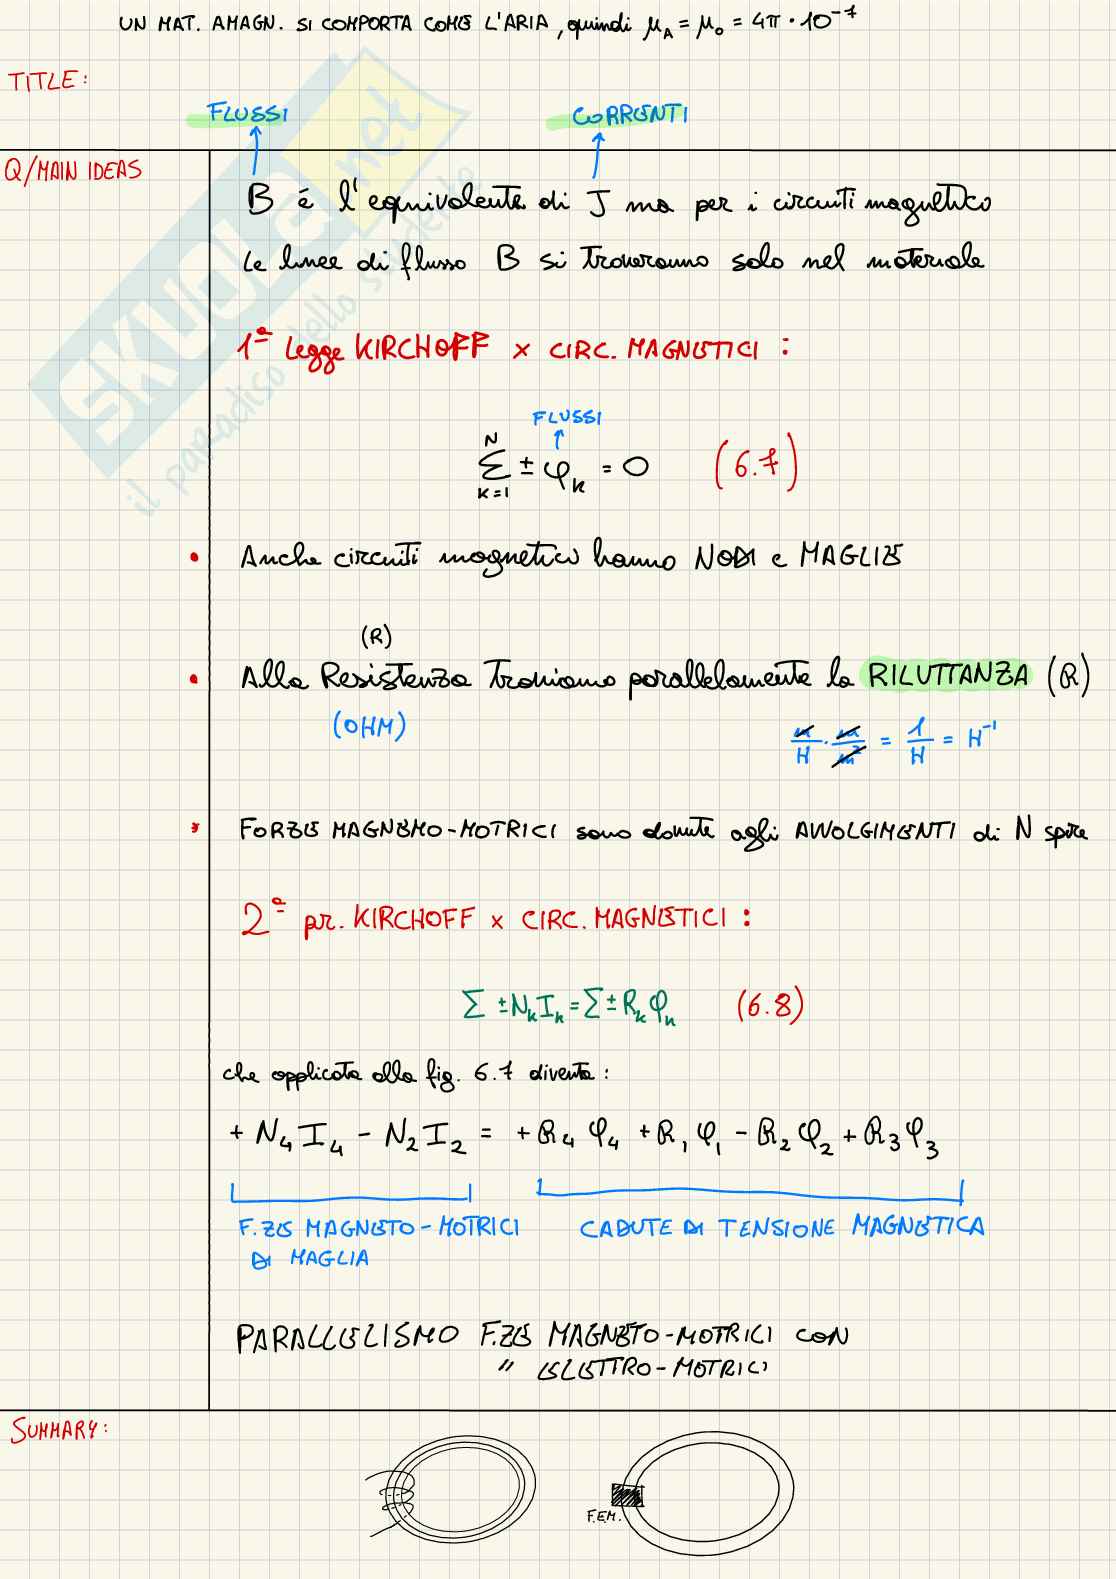 UN MAT. AMAGN. SI COMPORTA COME L'ARIA, quindi μ_A = μ_0 = 4π · 10^-7
TITLE:
FLUSSI CORRENTI
Q/MAIN IDEAS
B è l'equivalente di J ma per i circuiti magnetico
Le linee di flusso B si troveranno solo nel materiale
1ª Legge KIRCHOFF x CIRC. MAGNETICI :
FLUSSI
N
Σ ± φ_k = 0 (6.7)
k=1
• Anche circuiti magnetico hanno NODI e MAGLIE
(R)
• Alla Resistenza troviamo parallelamente la RILUTTANZA (R)
(OHM)
m/H · m/m² = 1/H = H^-1
• FORZE MAGNEMO-MOTRICI sono dovute agli AVVOLGIMENTI di N spire
2ª pr. KIRCHOFF x CIRC. MAGNETICI :
Σ ±N_k I_k = Σ ± R_k φ_k (6.8)
che applicata alla fig. 6.7 diventa :
+ N_4 I_4 - N_2 I_2 = + R_4 φ_4 + R_1 φ_1 - R_2 φ_2 + R_3 φ_3
F.ZE MAGNETO-MOTRICI
DI MAGLIA
CADUTE DI TENSIONE MAGNETICA
PARALLELISMO F.ZE MAGNETO-MOTRICI CON
" ELETTRO-MOTRICI
SUMMARY:
F.E.M.
SKUOLA.net
il paradiso dello studente